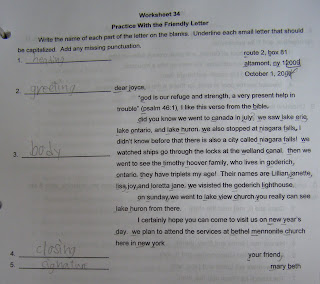 Worksheet 34
Practice With the Friendly Letter
Write the name of each part of the letter on the blanks. Underline each small letter that should
be capitalized. Add any missing punctuation.
1. heading
route 2, box 81
altamont, ny 12009
October 1, 2009
2. greeting
dear joyce,
"god is our refuge and strength, a very present help in
trouble" (psalm 46:1). I like this verse from the bible.
did you know we went to canada in july. we saw lake erie,
lake ontario, and lake huron. we also stopped at niagara falls. I
didn't know before that there is also a city called niagara falls! we
watched ships go through the locks at the welland canal. then we
3. body
went to see the timothy hoover family, who lives in goderich,
ontario. they have triplets my age! Their names are Lillian,janette,
lisa,joy,and loretta jane. we visisted the goderich lighthouse.
on sunday,we went to lake view church.you really can see
lake huron from there.
I certainly hope you can come to visit us on new year's
day. we plan to attend the services at bethel mennonite church
here in new york.
4. closing
your friend,
5. signature
mary beth